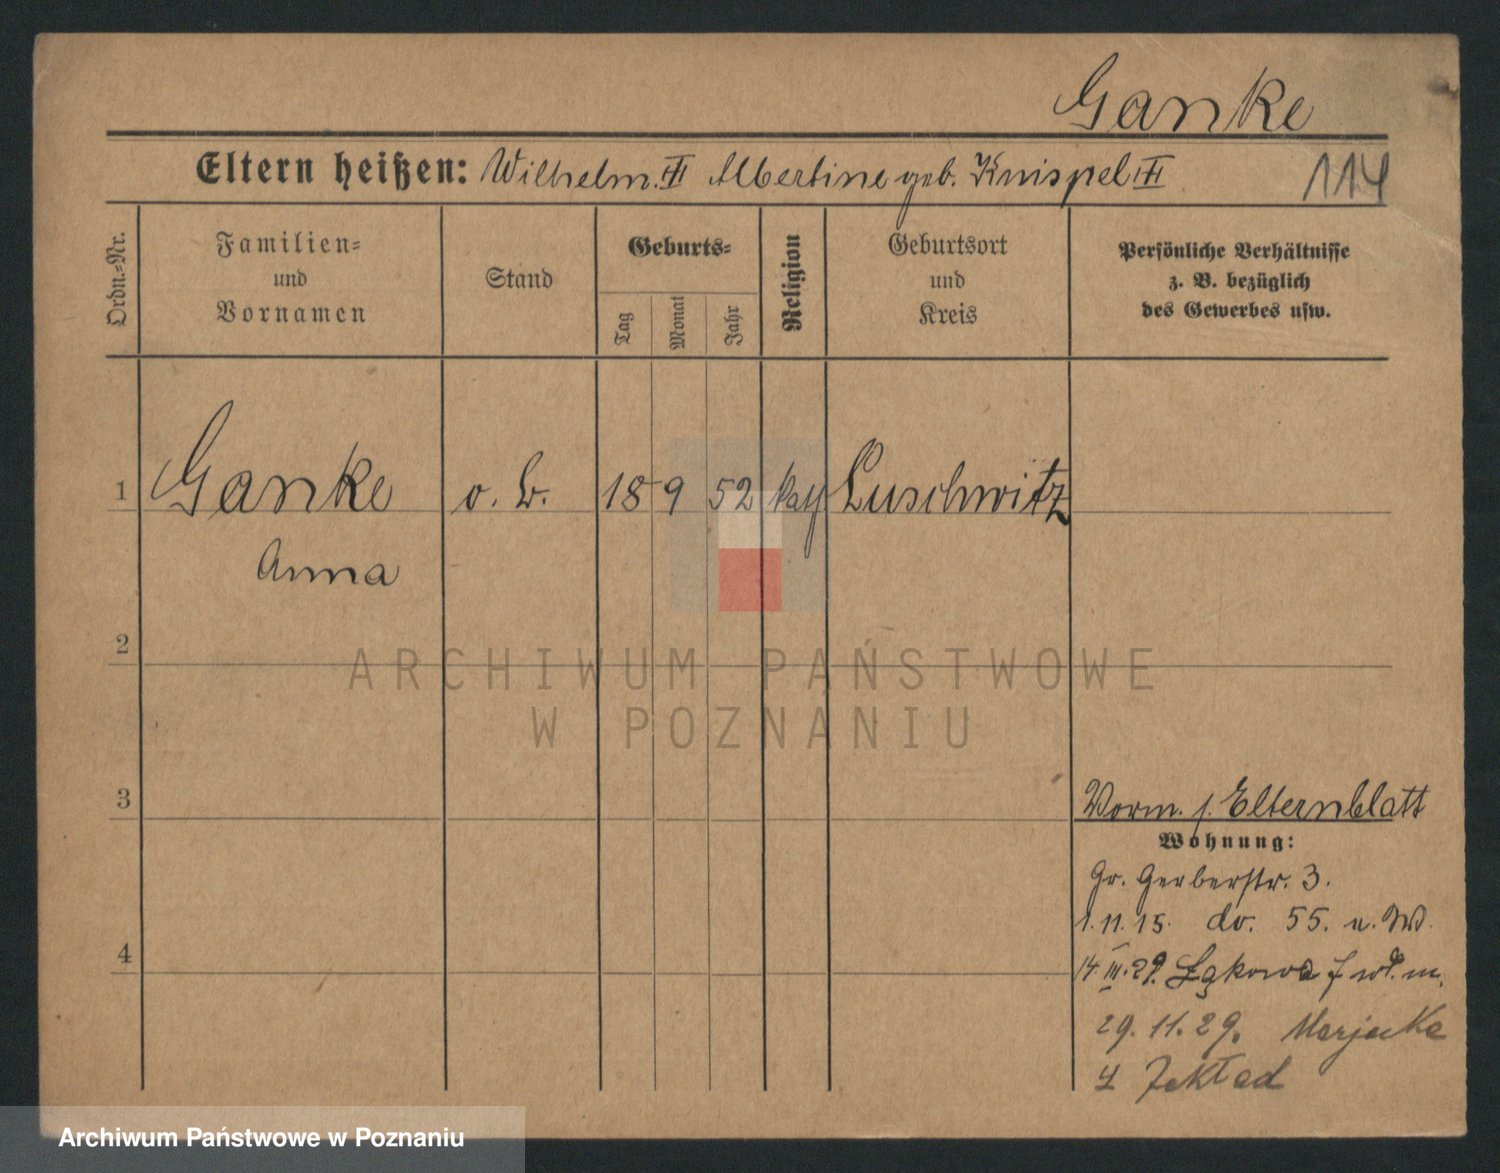 Ganke
Eltern heißen: Wilhelm III Albertine geb. Knispel III
114
Ordn.=Nr.
Familien=
und
Vornamen
Stand
Geburts=
Tag
Monat
Jahr
Religion
Geburtsort
und
Kreis
Persönliche Verhältnisse
z. B. bezüglich
des Gewerbes usw.
1 Ganke o. B. 18 9 52 kath. Luschwitz
Anna
2
ARCHIWUM PAŃSTWOWE
W POZNANIU
3
Vorm. s. Elternblatt
Wohnung:
Gr. Gerberstr. 3.
1.11.15. do. 55. u. W.
4
14.III.29. Łąkowa 7 wł. m.
29.11.29. Marjacka
4 Zakład
Archiwum Państwowe w Poznaniu